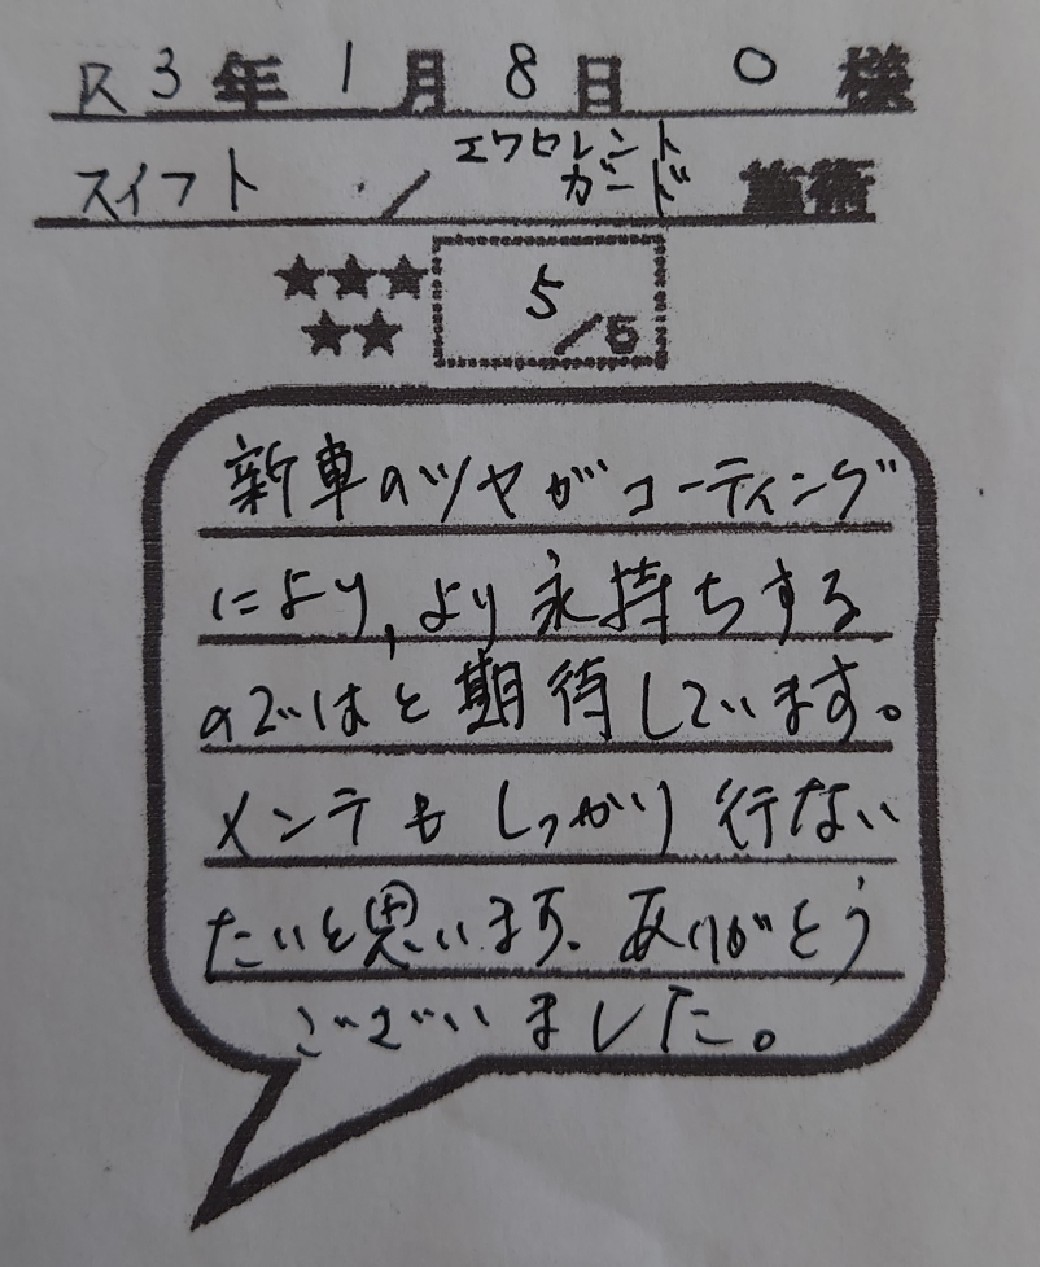 R3年1月8日 O様
スイフト / エクセレントガード 施術
★★★
★★ 5/5
新車のツヤがコーティング
により,より永持ちする
のではと期待しています。
メンテもしっかり行ない
たいと思います。ありがとう
ございました。